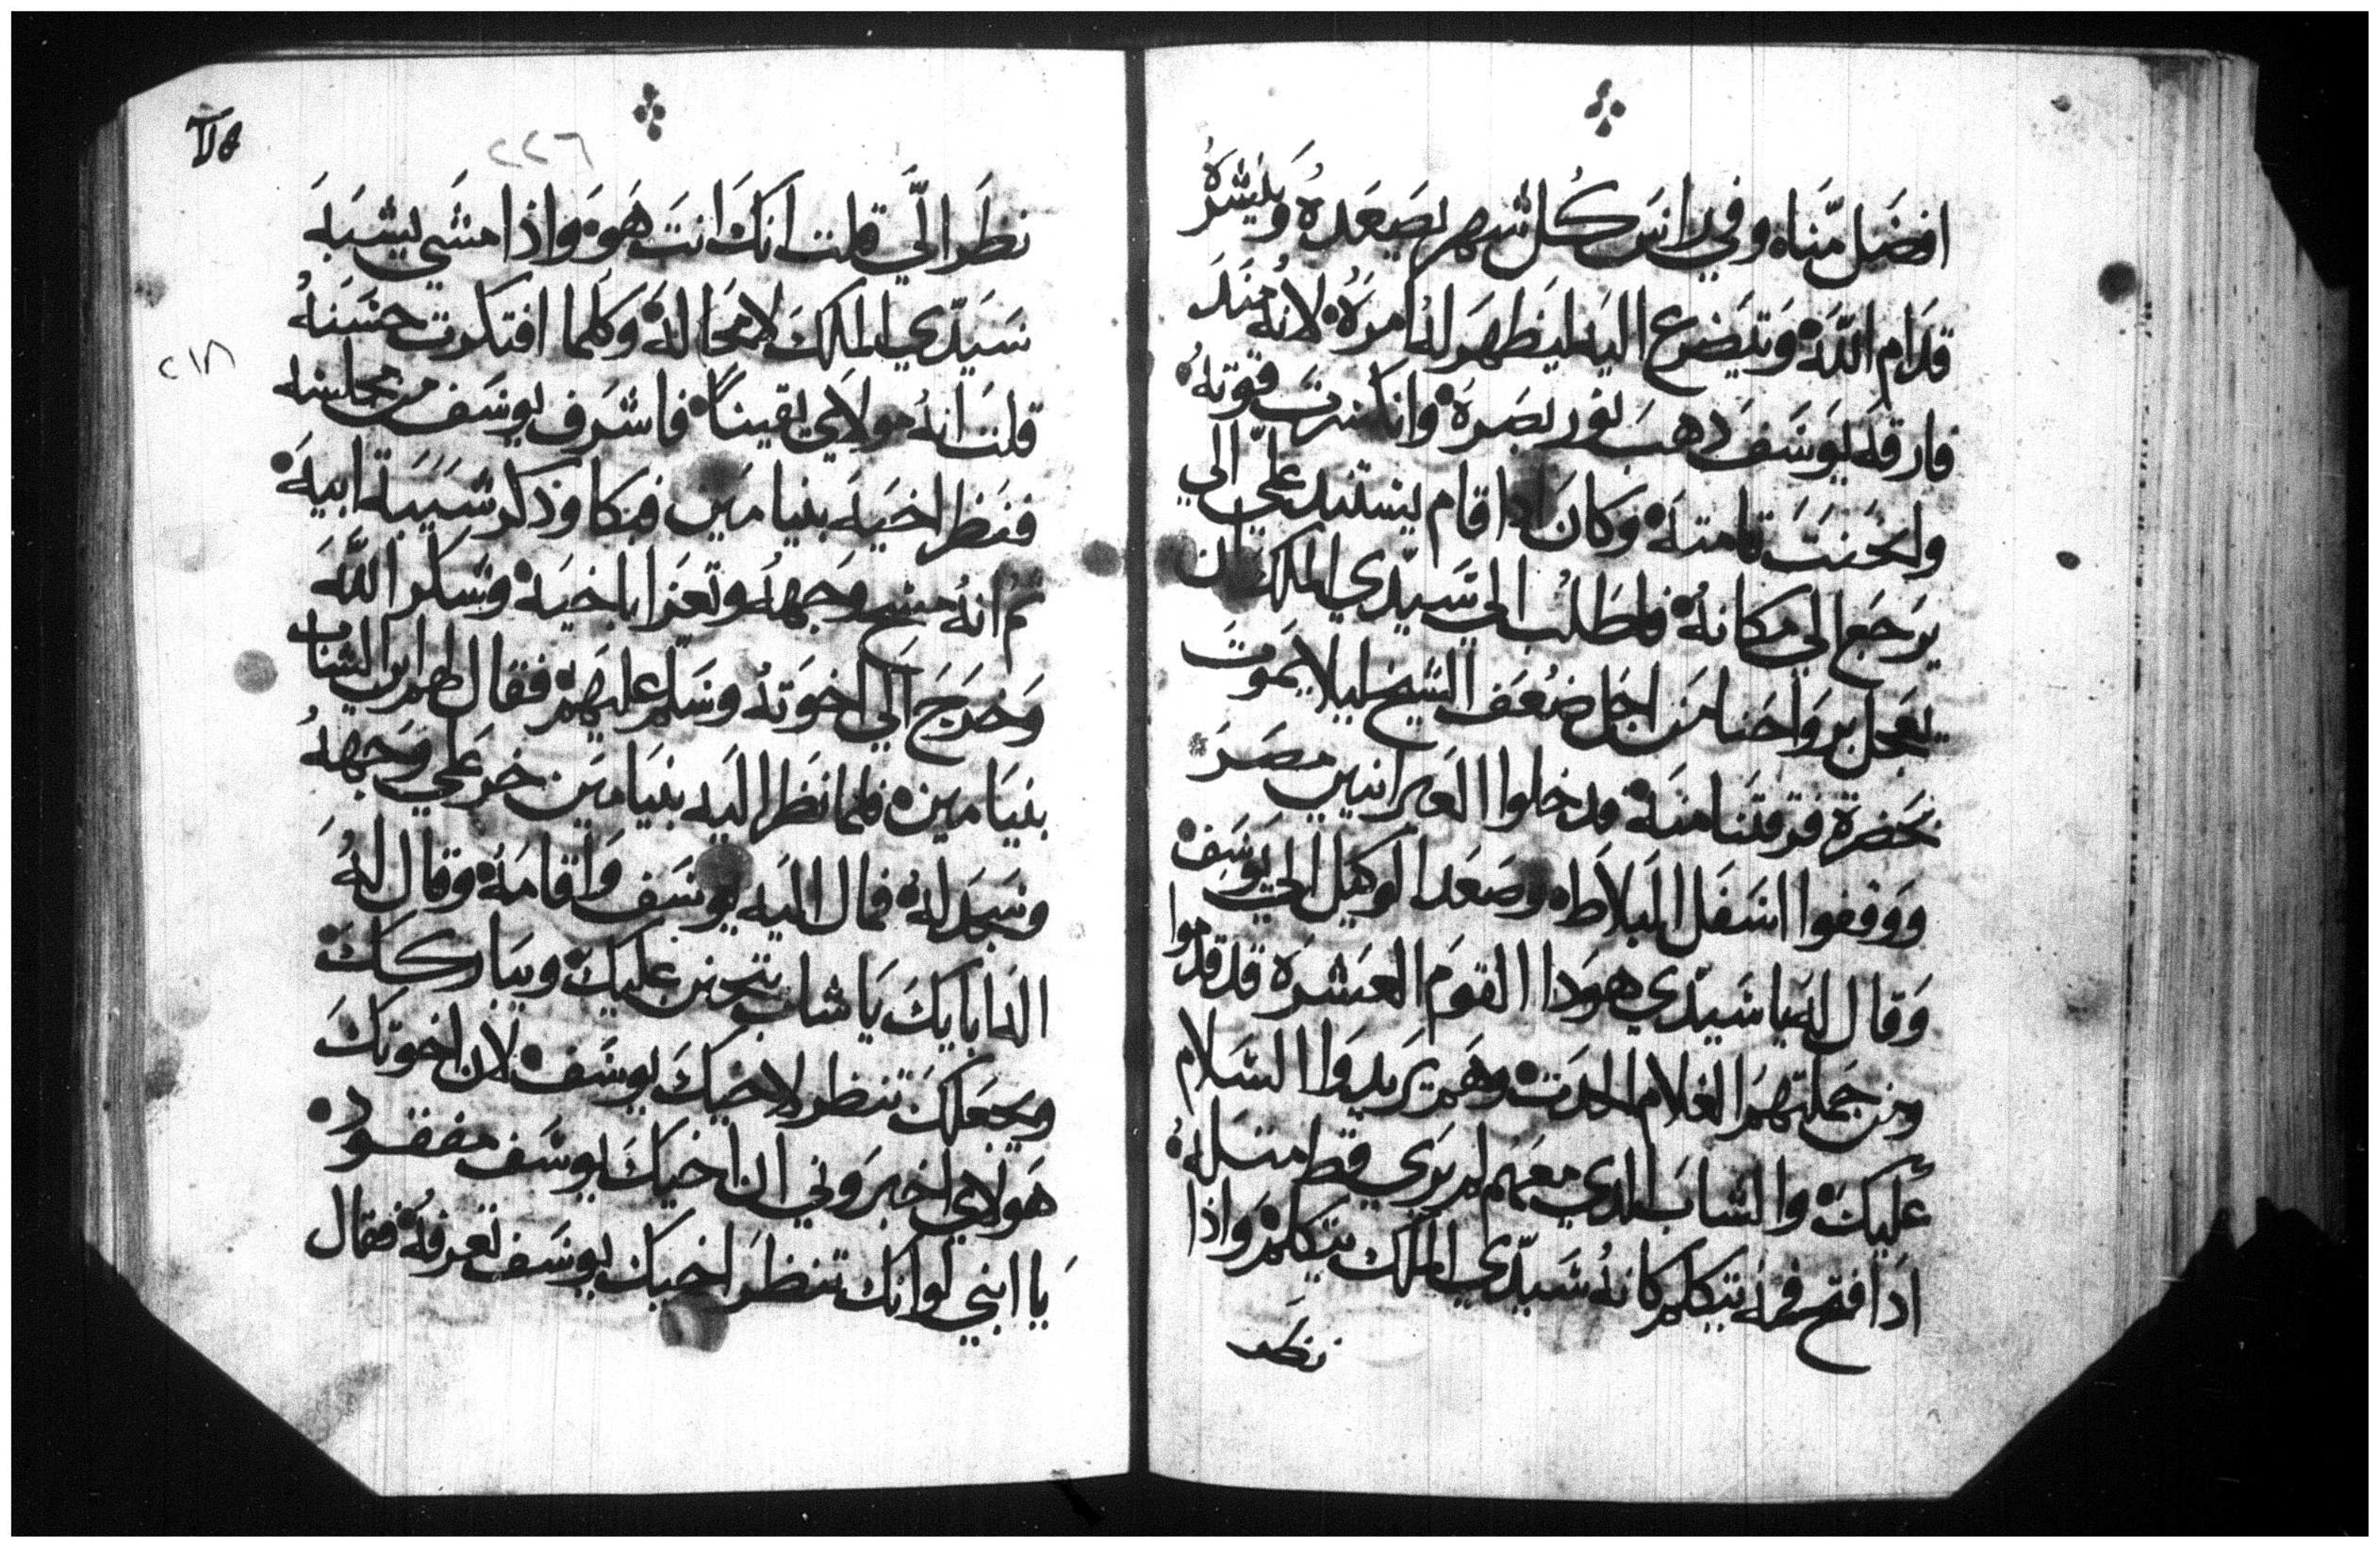 افضل منناه وفي راس كل شهر يصعده وينشره
قدام الله وتيضرع اليه ليظهر له امره لانه منذ
فارقه يوسف دهب نور بصره وانكسرت قوته
وانحنت قامته وكان ادا قام يستند علي الي
يرجع الي مكانه فاطلب الي سيدي الملك ان
يعجل برواحنا من اجل ضعف الشيخ ليلا يموت
بحضرة فرقتنا منه فدخلوا العبرانيين مصر
ووقفوا اسفل البلاطه وصعد الوكيل الي يوسف
وقال له ياسيدي هودا القوم العشره قد قدموا
ومن جملتهم الغلام الحدت وهم يريدوا السلام
عليك والشاب الدي معهم لم يري قط متله
ادا فتح فمه يتكلم كانه سيدي الملك يتكلم واذا
نظر
٢٢٦
نظر الي قلت انك انت هو واذا مشي يشبه
سيدي الملك لا محاله وكلما افتكرت حسنه
قلت انه مولاي يقيناً فاشرف يوسف من مجلسه
فنظر اخيه بنيامين فبكا وذكر شيبة ابيه
تم انه مسح وجهه وتعزا باخيه وشكر الله
وخرج الي اخوته وسلم عليهم فقال لهم اين الشاب
بنيامين فلما نظر اليه بنيامين خر علي وجهه
وسجد له فمال اليه يوسف واقامه وقال له
اله ابايك يا شاب يتحنن عليك ويباركك
ويجعلك تنظر لاخيك يوسف لان اخوتك
هولاي اخبروني ان اخيك يوسف مفقود
يا ابني لو انك تنظر اخيك يوسف تعرفه فقال
٢١٨